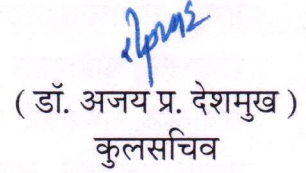 ( डॉ. अजय प्र. देशमुख )
कुलसचिव